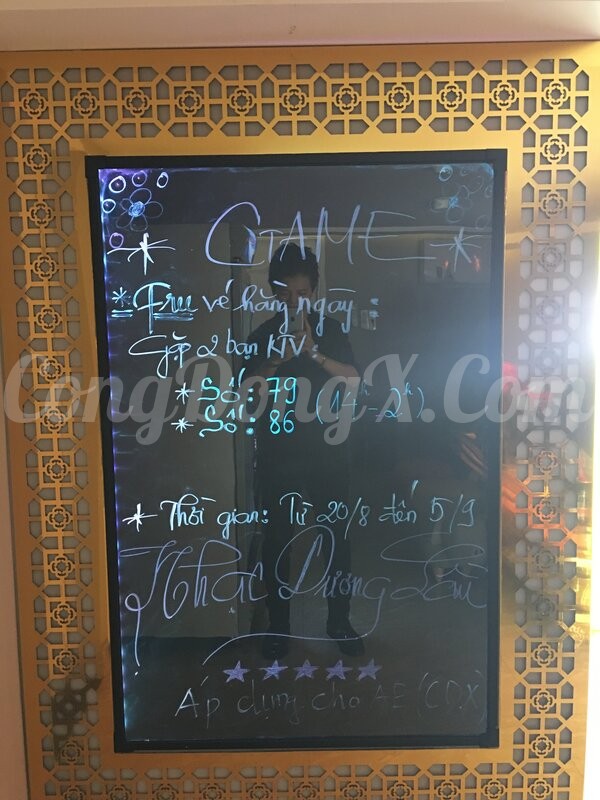 GAME
* Free vé hằng ngày :
Gặp 2 bạn KTV
* Số: 79
* Số: 86 (14h - 2h)
* Thời gian: Từ 20/8 đến 5/9
Nhất Dương Lâu
Áp dụng cho AE (CĐX)
CongDongX.Com